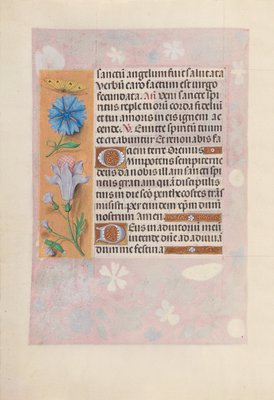 sancti angelum fuit salutata
Verbū caro factum est virgo
fecundata. Añ Veni sancte spi
ritus reple tuorū corda fideliū
et tui amoris in eis ignem ac
cende. V. Emitte spiritū tuum
et creabuntur. Et renovabis fa
ciem terre Oremus
Omnipotens sempiterne
deus da nobis illam sancti spi
ritus gratiam quā discipulis
tuis in die scō penthecostes trās
misisti. per eundem xp̄m dnm̄
nostrum amen
Deus in adiutoriū meū
intende dn̄e ad adiuvā
dum me festina